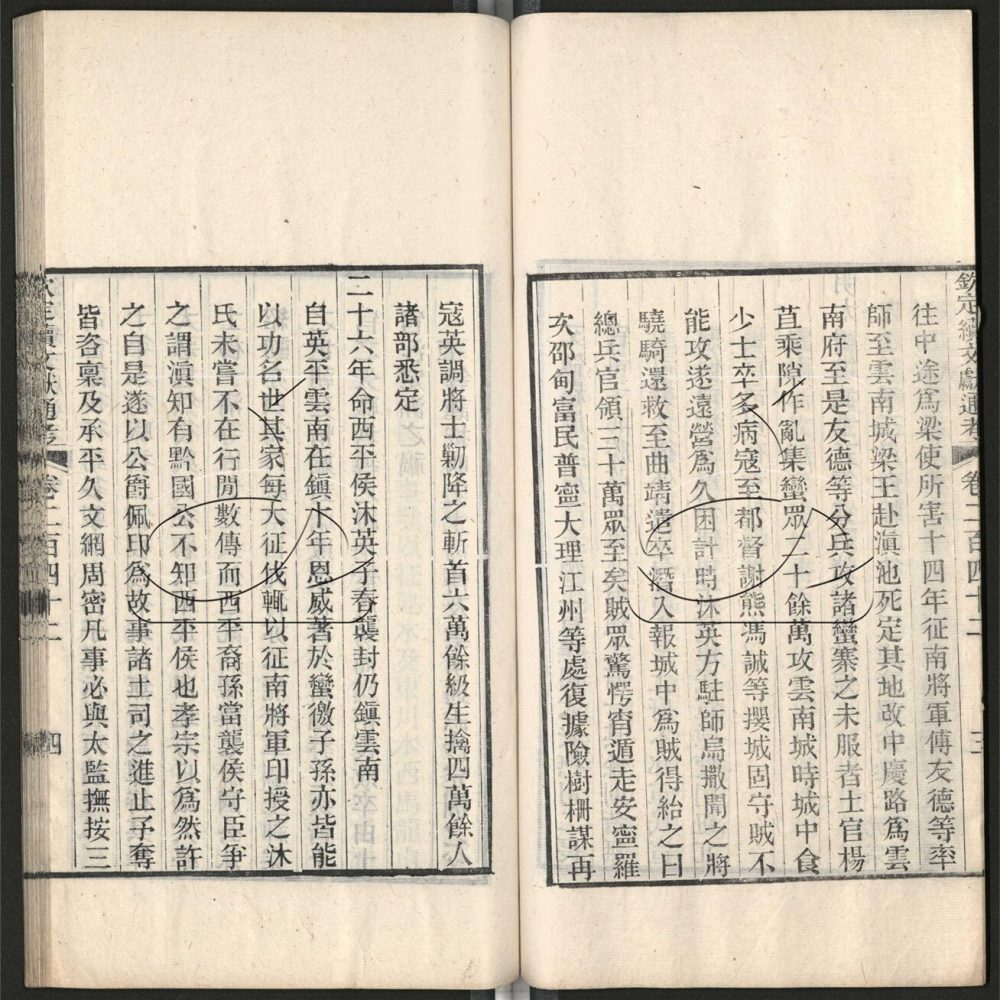 欽定續文獻通考 卷二百四十二 三
往中途爲梁使所害十四年征南將軍傅友德等率
師至雲南城梁王赴滇池死定其地改中慶路爲雲
南府至是友德等分兵攻諸蠻寨之未服者土官楊
苴乘隙作亂集蠻眾二十餘萬攻雲南城時城中食
少士卒多病寇至都督謝熊馮誠等攖城固守賊不
能攻遂遠營爲久困計時沐英方駐師烏撒聞之將
驍騎還救至曲靖遣卒潛入報城中爲賊得紿之曰
總兵官領三十萬眾至矣賊眾驚愕宵遁走安寧羅
次邵甸富民普寧大理江州等處復據險樹柵謀再
寇英調將士勦降之斬首六萬餘級生擒四萬餘人
諸部悉定
二十六年命西平侯沐英子春襲封仍鎮雲南
自英平雲南在鎮十年恩威著於蠻徼子孫亦皆能
以功名世其家每大征伐輒以征南將軍印授之沐
氏未嘗不在行閒數傳而西平裔孫當襲侯守臣爭
之謂滇知有黔國公不知西平侯也孝宗以爲然許
之自是遂以公爵佩印爲故事諸土司之進止予奪
皆咨稟及承平久文網周密凡事必與太監撫按三
欽定續文獻通考 卷二百四十二 四